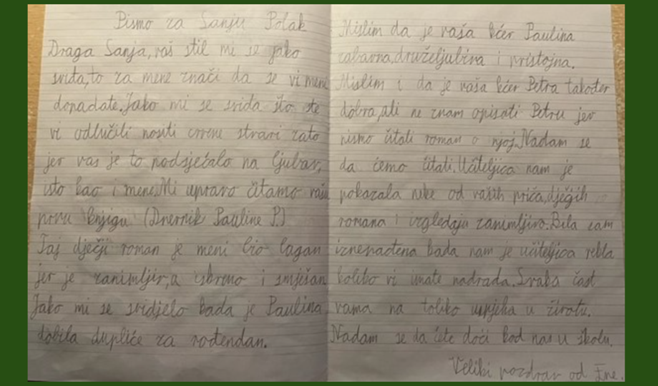 Pismo za Sanju Polak
Draga Sanja, vaš stil mi se jako
sviđa, to za mene znači da se vi meni
dopadate. Jako mi se sviđa što ste
vi odlučili nositi crvene stvari zato
jer vas je to podsjećalo na ljubav,
isto kao i mene. Mi upravo čitamo vašu
prvu knjigu (Dnevnik Pauline P.)
Taj dječji roman je meni bio lagan
jer je zanimljiv, a iskreno i smiješan
Jako mi se svidjelo kada je Paulina
dobila dupliće za rođendan.
Mislim da je vaša kćer Paulina
zabavna, druželjubiva i pristojna.
Mislim i da je vaša kćer Petra također
dobra, ali ne znam opisati Petru jer
nismo čitali roman o njoj. Nadam se
da ćemo čitati. Učiteljica nam je
pokazala neke od vaših priča, dječjih
romana i izgledaju zanimljivo. Bila sam
iznenađena kada nam je učiteljica rekla
koliko vi imate nadrada. Svaka čast
vama na toliko uspjeha u životu.
Nadam se da ćete doći kod nas u školu.
Veliki pozdrav od Ene.